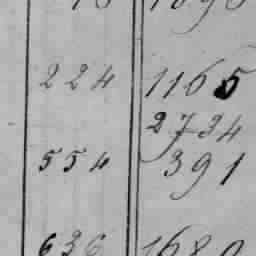 224 1165
2734
554 391
636 1680